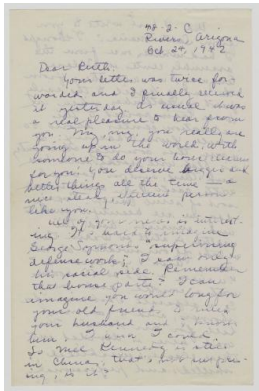 Rivers, Arizona
Oct. 24, 1942
Dear Ruth:
Your letter was twice for-
warded and I finally received
it yesterday. As usual it was
a real pleasure to hear from
you. My, my, you really are
going up in the world, with
someone to do your house
for you. You deserve bigger and
better things all the time — a
nice person
like you.
All of your news is interest-
ing. It's hard to imagine
George "supervising
defense work."
his social side. Remember
that house party? I can
imagine you would long for
your old friends. I
your husband and I know
him I
So Mel Kennedy is still
in China; that's not surpris-
ing, is it?